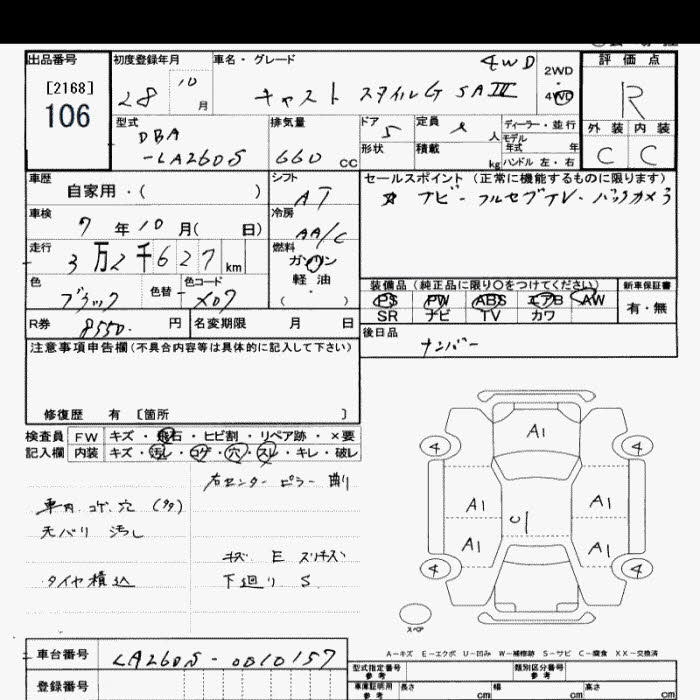 出品番号 初度登録年月 車名・グレード 4WD 2WD 4WD 評価点
[2168]
106
28 10月 キャスト スタイルG SAⅢ R
型式 DBA -LA260S 排気量 660 cc ドア 5 定員 4 人 ディーラー・並行
形状 積載 kg モデル年式 年 ハンドル 左・右
外装 内装
C C
車歴 自家用・( ) シフト AT
セールスポイント (正常に機能するものに限ります)
ナビ・フルセグTV・バックカメラ
車検 7年10月( 日) 冷房 AA/C
走行 3万2千627km 燃料 ガソリン
軽油
( )
色 ブラック 色替 色コード X07
装備品 (純正品に限り〇をつけてください) 新車保証書
PS PW ABS エアB AW 有・無
SR ナビ TV カワ
R券 8550. 円 名変期限 月 日
後日品 ナンバー
注意事項申告欄(不具合内容等は具体的に記入して下さい)
修復歴 有 〔箇所 〕
検査員 FW キズ・飛石・ヒビ割・リペア跡・×要
記入欄 内装 キズ・汚レ・コゲ・穴・スレ・キレ・破レ
右センターピラー曲り
車内コゲ.穴(多)
天バリ 汚し
キズ E スリキズ
タイヤ積込 下廻り S
A1
4 4
A1 A1
A1 A1
4 4
スペア
A-キズ E-エクボ U-凹み W-補修跡 S-サビ C-腐食 XX-交換済
車台番号 LA260S-0010157
型式指定番号 参考 類別区分番号 参考
登録番号 車庫証明用 参考 長さ cm 幅 cm 高さ cm